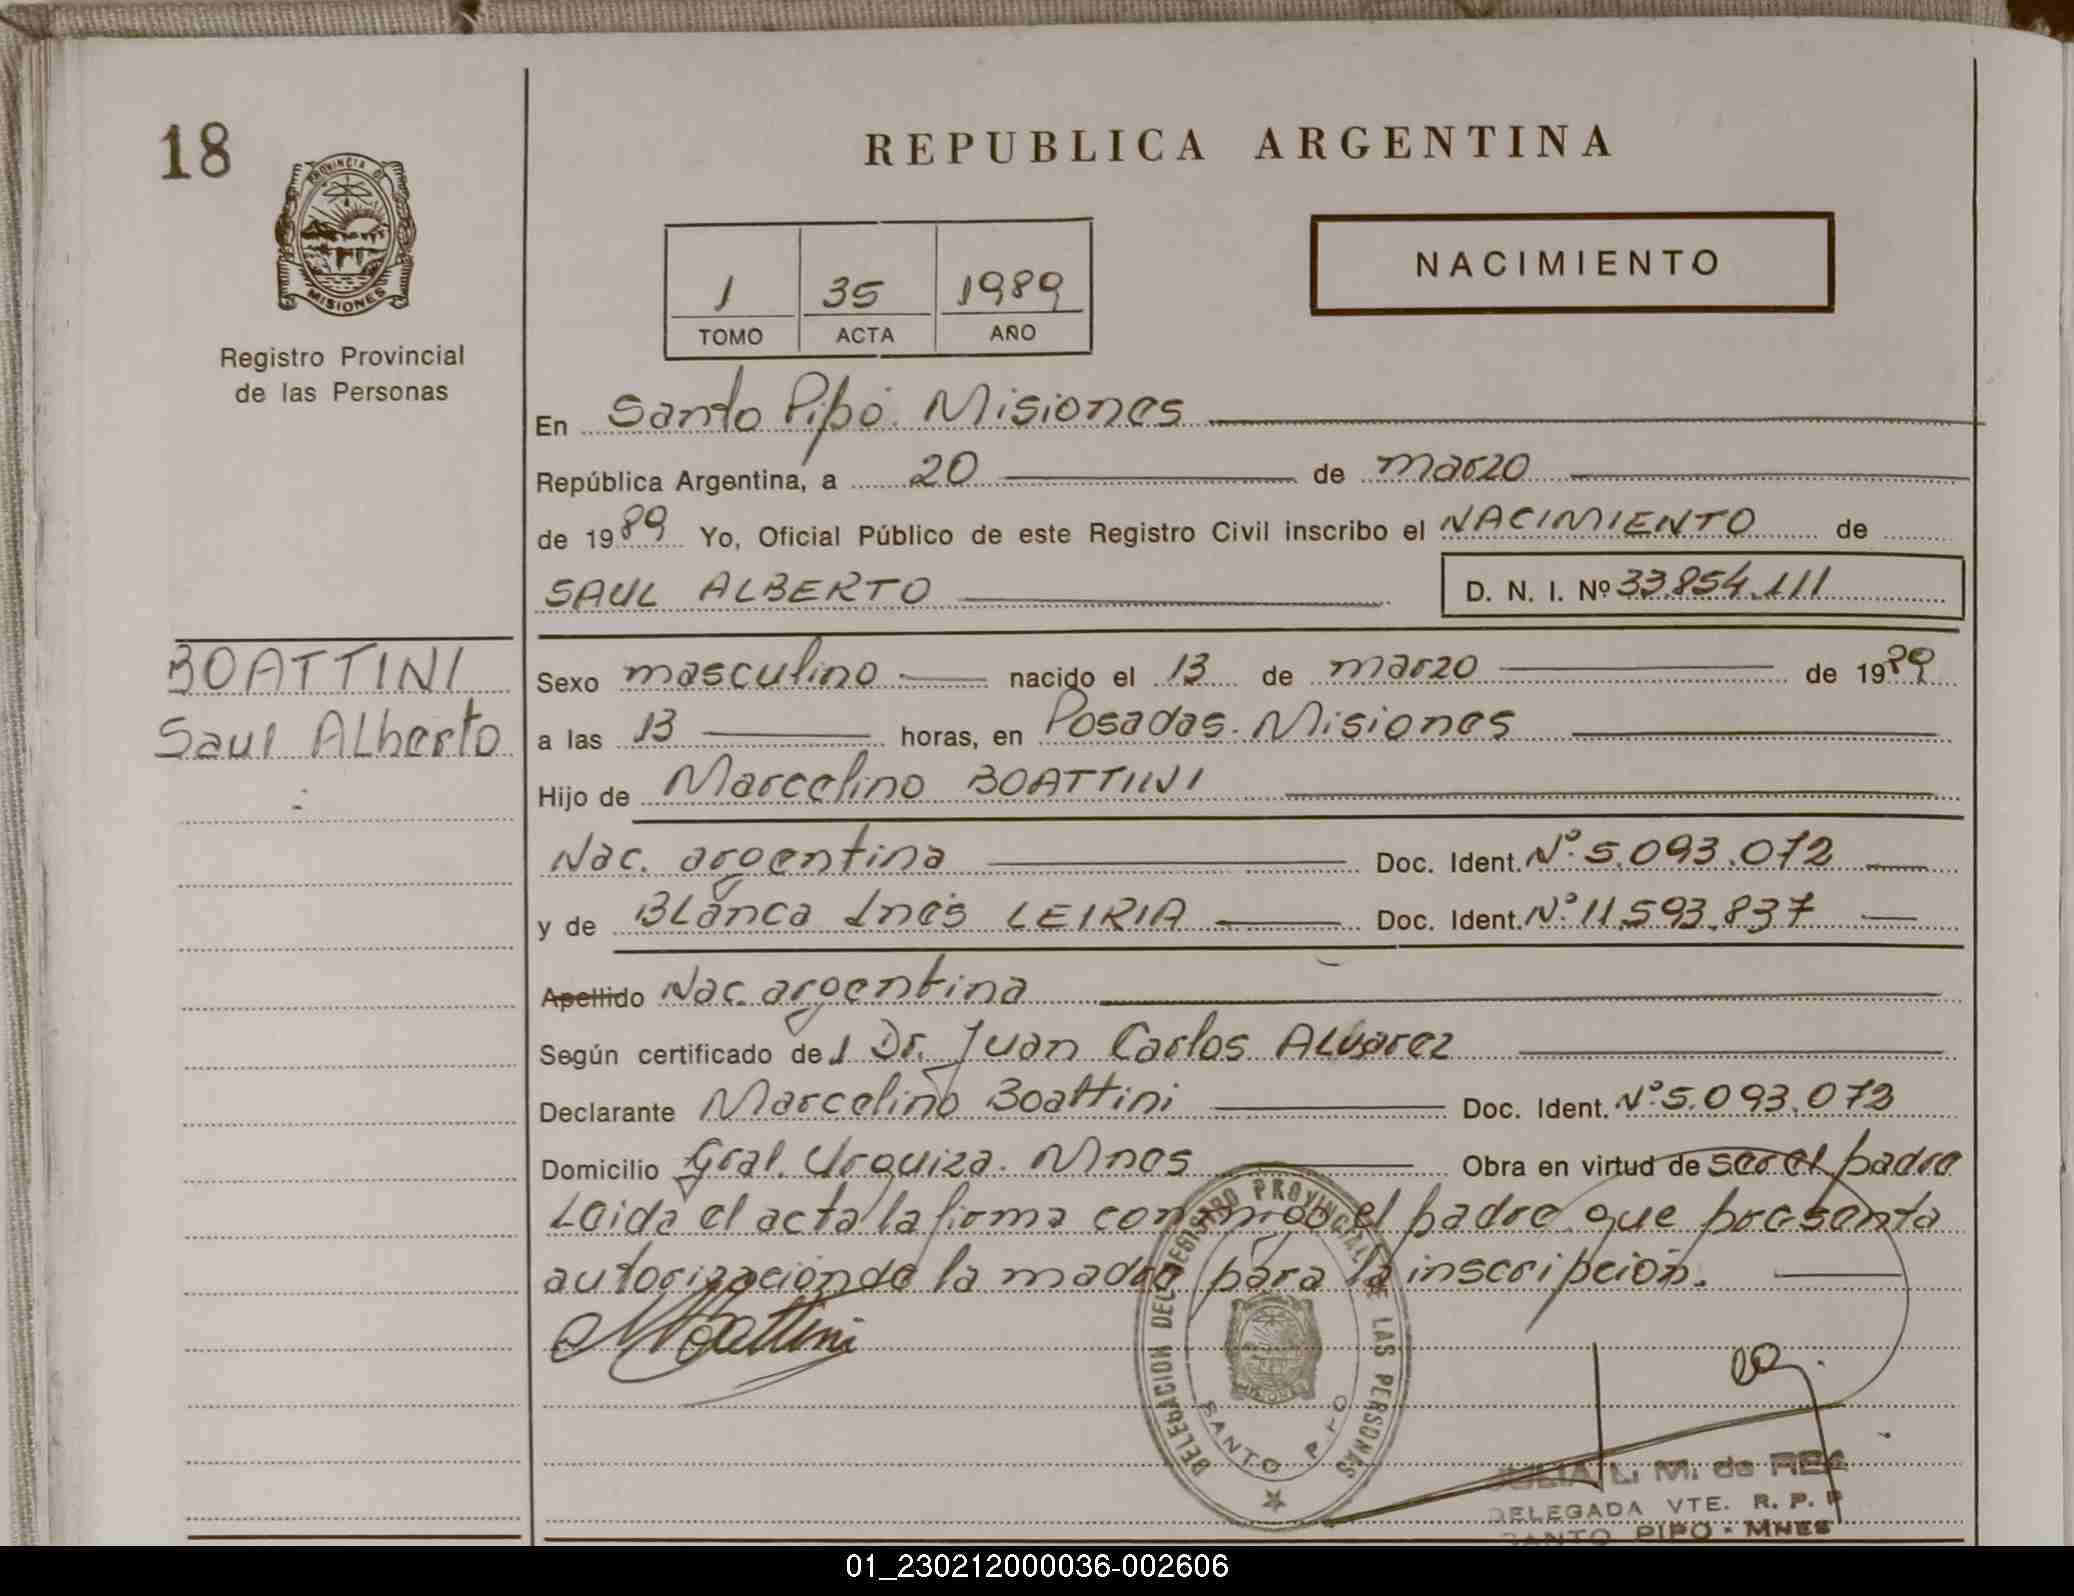 18
PROVINCIA DE
MISIONES
Registro Provincial
de las Personas
REPUBLICA ARGENTINA
1 35 1989
TOMO ACTA AÑO
NACIMIENTO
En Santo Pipó. Misiones
República Argentina, a 20 de marzo
de 1989 Yo, Oficial Público de este Registro Civil inscribo el NACIMIENTO de
SAUL ALBERTO D. N. I. Nº 33.854.111
BOATTINI
Saul Alberto
Sexo masculino nacido el 13 de marzo de 1989
a las 13 horas, en Posadas. Misiones
Hijo de Marcelino BOATTINI
Nac. argentina Doc. Ident. Nº 5.093.072
y de Blanca Inés LEIRIA Doc. Ident. Nº 11.593.837
Apellido Nac. argentina
Según certificado del Dr. Juan Carlos Alvarez
Declarante Marcelino Boattini Doc. Ident. Nº 5.093.072
Domicilio Gral. Urquiza. Mnes Obra en virtud de ser el padre
Leida el acta la firma conmigo el padre que presenta
autorización de la madre para la inscripción.
MBoattini
DELEGACION DEL REGISTRO PROVINCIAL DE LAS PERSONAS
SANTO PIPO
JULIA L. M. de
DELEGADA VTE. R. P. P
SANTO PIPO - MNES
01_230212000036-002606